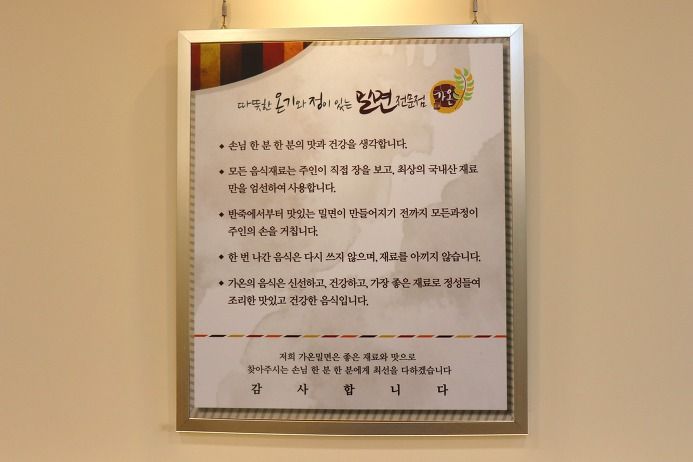 따뜻한 온기와 정이 있는 밀면 전문점 가온
◆ 손님 한 분 한 분의 맛과 건강을 생각합니다.
◆ 모든 음식재료는 주인이 직접 장을 보고, 최상의 국내산 재료
만을 엄선하여 사용합니다.
◆ 반죽에서부터 맛있는 밀면이 만들어지기 전까지 모든과정이
주인의 손을 거칩니다.
◆ 한 번 나간 음식은 다시 쓰지 않으며, 재료를 아끼지 않습니다.
◆ 가온의 음식은 신선하고, 건강하고, 가장 좋은 재료로 정성들여
조리한 맛있고 건강한 음식입니다.
저희 가온밀면은 좋은 재료와 맛으로
찾아주시는 손님 한 분 한 분에게 최선을 다하겠습니다
감 사 합 니 다